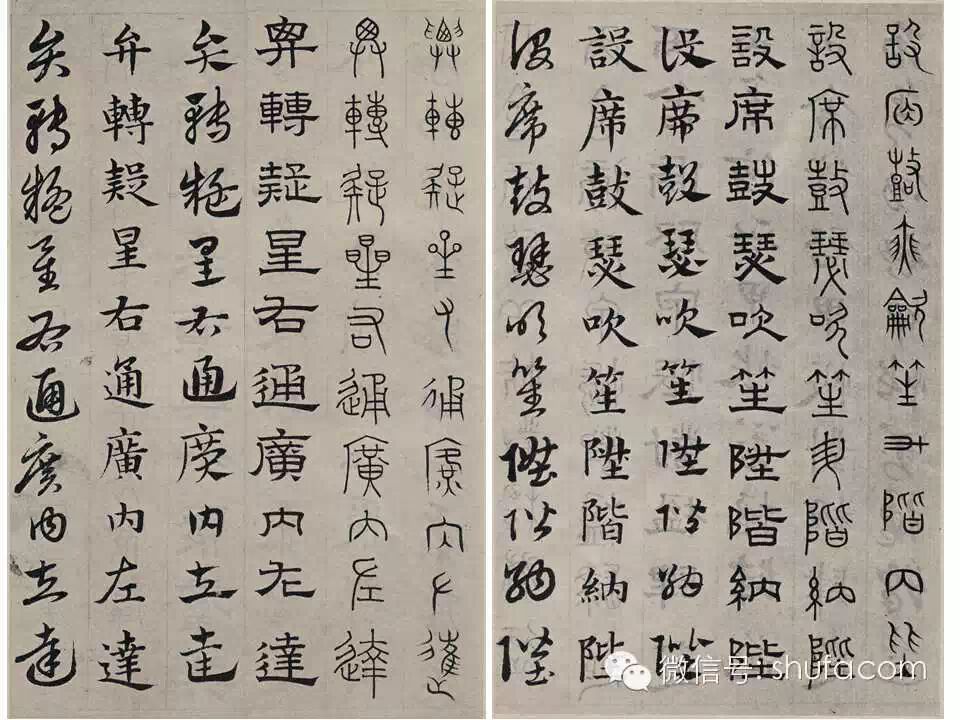 設席鼓瑟龡笙升階内陛
設席鼓瑟吹笙升階納陛
設席鼓瑟吹笙陞階納陛
設席鼓瑟吹笙陞階納陛
設席鼓瑟吹笙陞階納陛
設席鼓瑟吹笙陞階納陛
弁轉疑星右通廣内左達
弁轉疑星右通廣内左達
弁轉疑星右通廣内左達
弁轉疑星右通廣内左達
弁轉疑星右通廣内左達
弁轉疑星右通廣内左達
微信号: shufacom